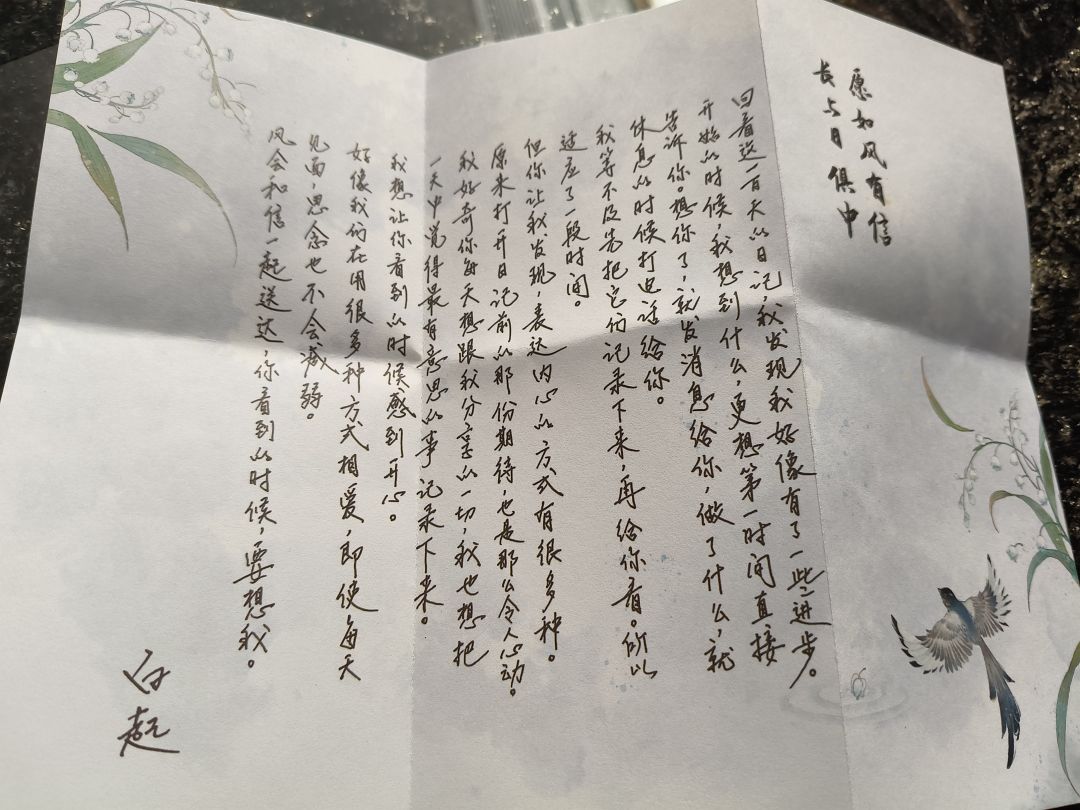 愿如风有信
长与日俱中
回看这一百天的日记，我发现我好像有了一些进步。
开始的时候，我想到什么，更想第一时间直接
告诉你。想你了，就发消息给你，做了什么，就
休息的时候打电话给你。
我等不及先把它们记录下来，再给你看。所以
适应了一段时间。
但你让我发现，表达内心的方式有很多种。
原来打开日记前的那份期待，也是那么令人心动。
我好奇你每天想跟我分享的一切，我也想把
一天中觉得最有意思的事记录下来。
我想让你看到的时候感到开心。
好像我们在用很多种方式相爱，即使每天
见面，思念也不会减弱。
风会和信一起送达，你看到的时候，要想我。
白起